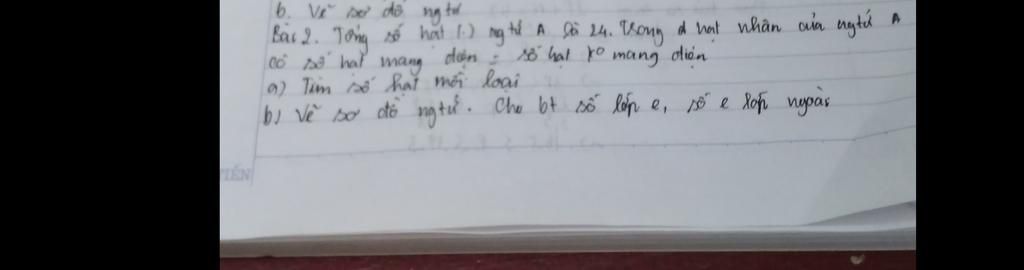 b. Vẽ sơ đồ ngtử
Bài 2. Tổng số hạt (.) ngtử A là 24. Trong hạt nhân của ngtử A
có số hạt mang điện = số hạt ko mang điện
a) Tìm số hạt mỗi loại
b) Vẽ sơ đồ ngtử. Cho bt số lớp e, số e lớp ngoài
TIẾN